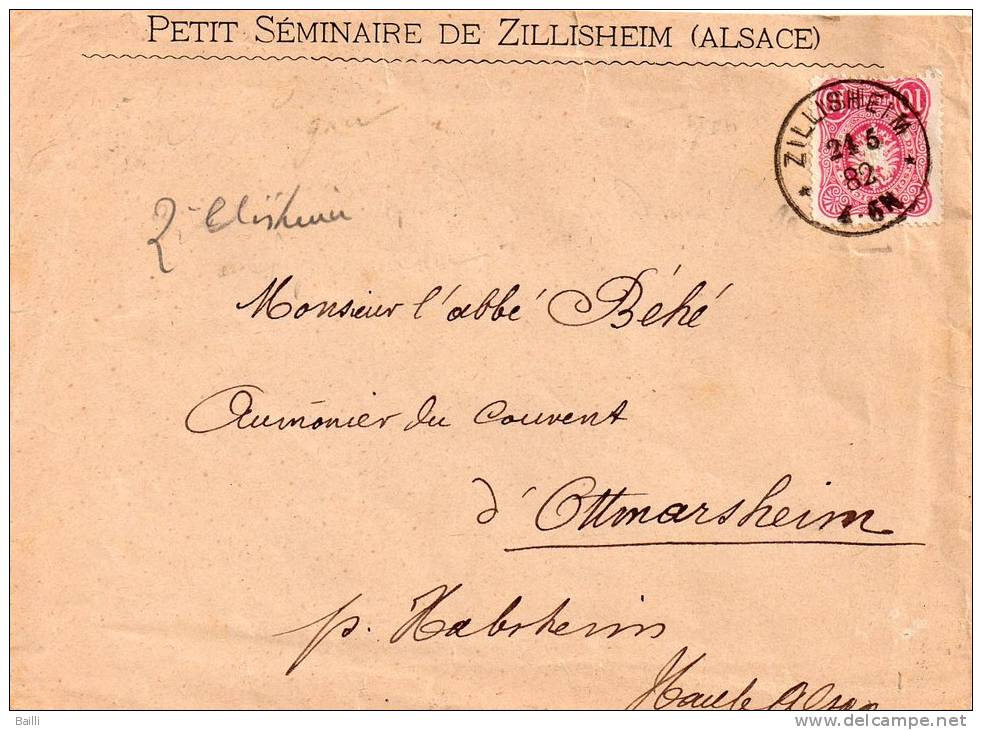 PETIT SÉMINAIRE DE ZILLISHEIM (ALSACE)
10 10
ZILLISHEIM
24 5
82
4-5N
Zillisheim
Monsieur l'abbé Béhé
Aumônier du couvent
d'Ottmarsheim
p. Habsheim
Haute Alsace
Bailli
http://www.delcampe.net